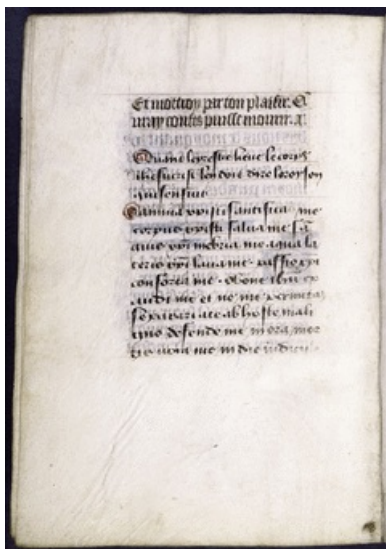 Et mort ou par ton plaisir. Q
vray confes puisse mourir. A
Quant le prestre lieue le corps
ihesucrist len doit dire loroison
qui sensuit
anima xpisti santifica me
corpus xpisti salva me sā
guis xpi inebria me aqua la
teris xpi lava me passio xpi
conforta me o bone ihu ex
audi me et ne me permitas
separari a te ab hoste mali
gno defende me in ora mor
tis voca me